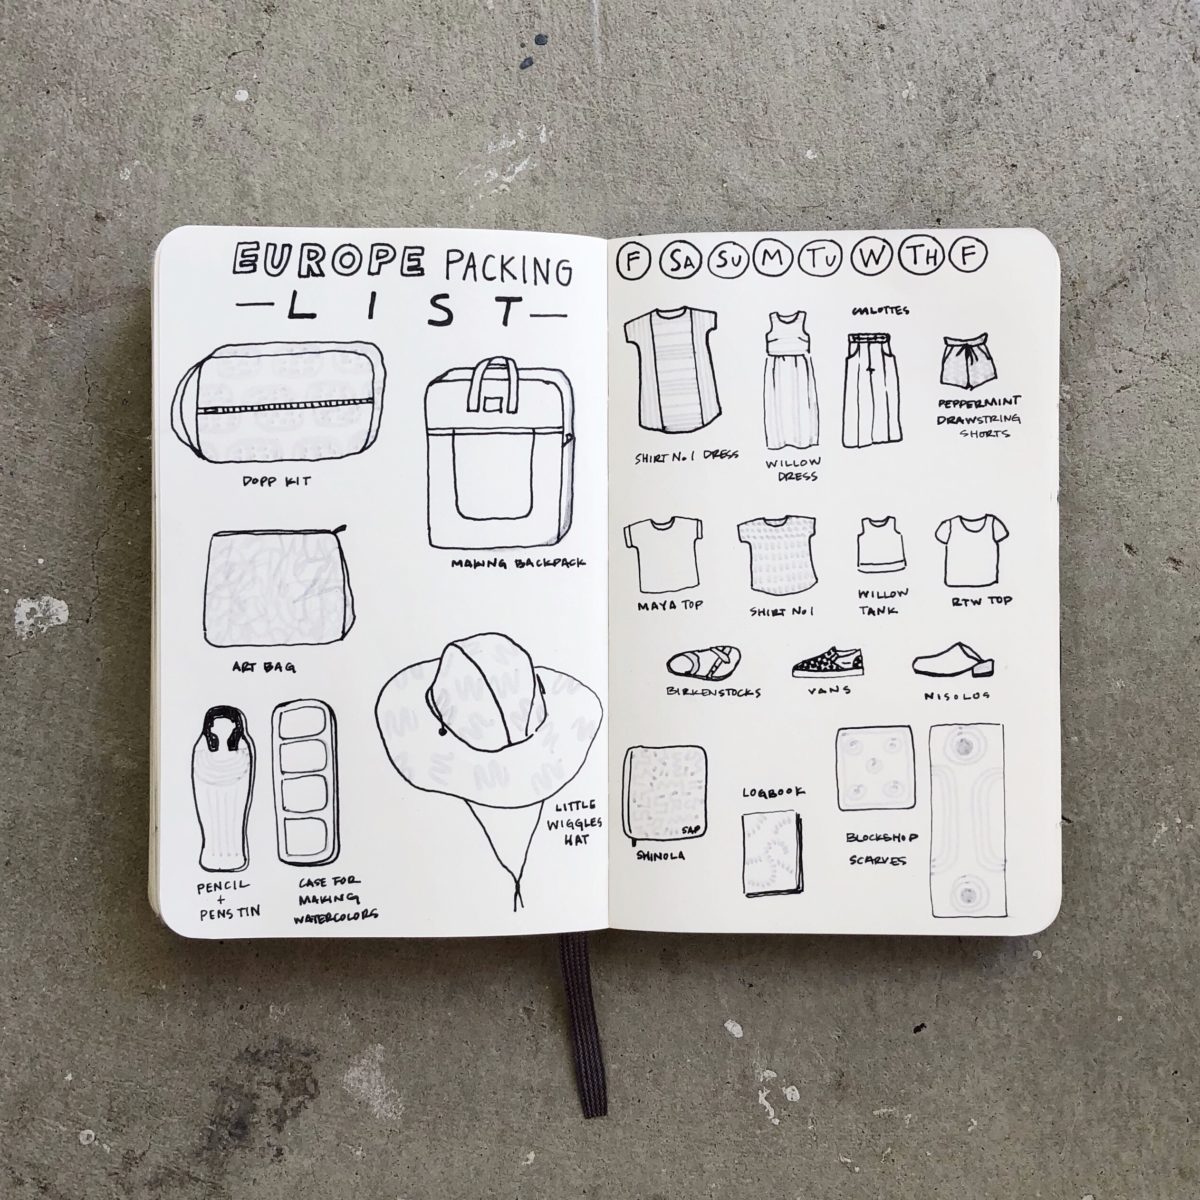 EUROPE PACKING
— LIST —
DOPP KIT
MAKING BACKPACK
ART BAG
LITTLE
WIGGLES
HAT
PENCIL
+
PENS TIN
CASE FOR
MAKING
WATERCOLORS
F SA SU M TU W TH F
SHIRT No. 1 DRESS
WILLOW
DRESS
CULOTTES
PEPPERMINT
DRAWSTRING
SHORTS
MAYA TOP
SHIRT No 1
WILLOW
TANK
RTW TOP
BIRKENSTOCKS
VANS
NISOLOS
SAP
SHINOLA
LOGBOOK
BLOCKSHOP
SCARVES